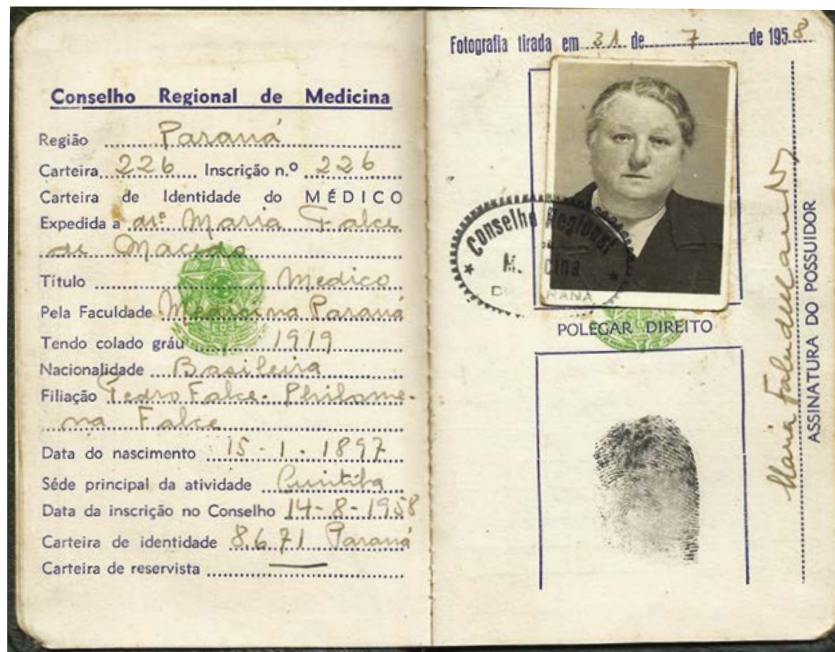 Conselho Regional de Medicina
Região Paraná
Carteira 226 Inscrição n.º 226
Carteira de Identidade do MÉDICO
Expedida a drª Maria Falce
de Macedo
Título Medico
Pela Faculdade Medicina Paraná
Tendo colado gráu 1919
Nacionalidade Brasileira
Filiação Pedro Falce - Philome-
na Falce
Data do nascimento 15 - 1 - 1897
Séde principal da atividade Curitiba
Data da inscrição no Conselho 14-8-1958
Carteira de identidade 8.671 Paraná
Carteira de reservista
Fotografia tirada em 31 de 7 de 1958
Conselho Regional
POLEGAR DIREITO
Maria Falce de Macedo
ASSINATURA DO POSSUIDOR